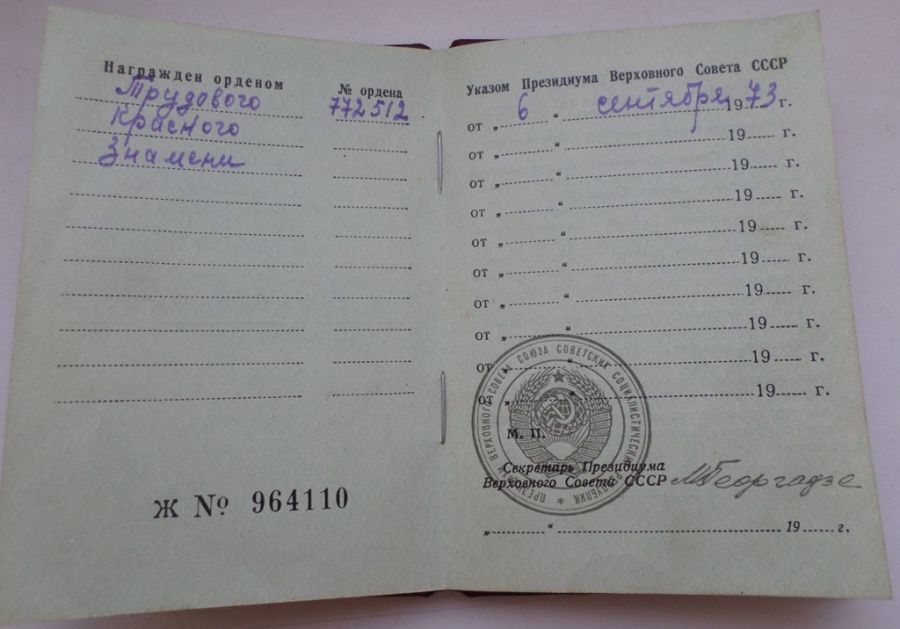 Награжден орденом
Трудового
Красного
Знамени
№ ордена
772512
Ж № 964110
Указом Президиума Верховного Совета СССР
от „ 6 “ сентября 1973 г.
от „ “ 19 г.
от „ “ 19 г.
от „ “ 19 г.
от „ “ 19 г.
от „ “ 19 г.
от „ “ 19 г.
от „ “ 19 г.
от „ “ 19 г.
от „ “ 19 г.
ПРЕЗИДИУМ ВЕРХОВНОГО СОВЕТА СОЮЗА СОВЕТСКИХ СОЦИАЛИСТИЧЕСКИХ РЕСПУБЛИК
М. П.
Секретарь Президиума
Верховного Совета СССР МГеоргадзе
„ “ 19 г.